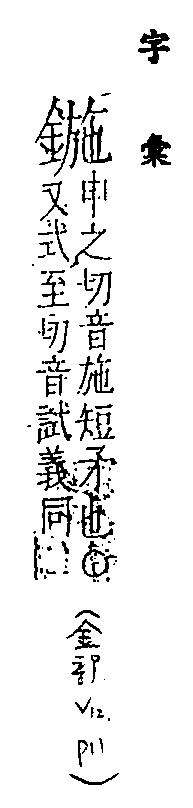 字彙
鍦
申之切音施短矛也①
又式至切音試義同
(金部 V12. P11)